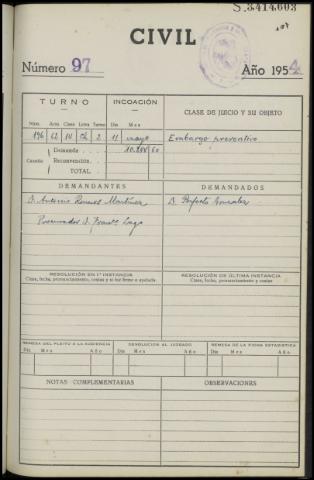 S.3414.603
CIVIL
Número 97 Año 1954
TURNO INCOACIÓN CLASE DE JUICIO Y SU OBJETO
Núm. Letra Día Mes
196 2 11 mayo Embargo preventivo
Demanda 60
Cuantía Reconvención.
TOTAL.
DEMANDANTES DEMANDADOS
D. Antonio Martínez D. Perfecto González
Procurador D. Lago
RESOLUCIÓN EN 1ª INSTANCIA RESOLUCIÓN DE ÚLTIMA INSTANCIA
Clase, fecha, pronunciamiento y costas y si fué firme o apelada Clase, fecha, pronunciamiento y costas
REMESA DEL PLEITO A LA AUDIENCIA DEVOLUCIÓN AL JUZGADO REMESA DE LA FICHA ESTADÍSTICA
Día Mes Año Día Mes Año Día Mes Año
NOTAS COMPLEMENTARIAS OBSERVACIONES